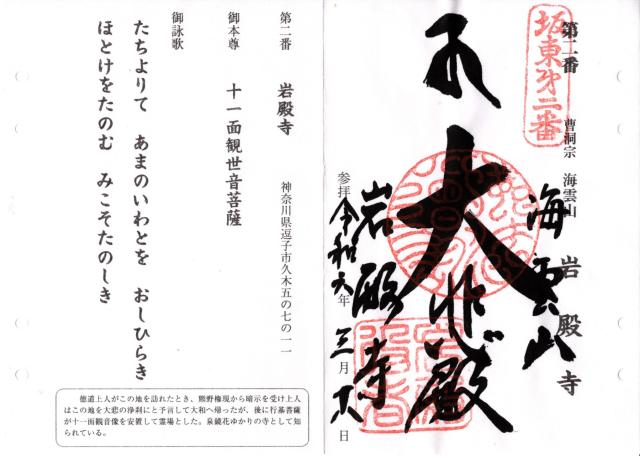 坂東第二番
第二番
曹洞宗 海雲山 岩殿寺
海雲山
大悲殿
岩殿寺
参拝 令和六年 三月 日
第二番 岩殿寺 神奈川県逗子市久木五の七の一一
御本尊 十一面観世音菩薩
御詠歌
たちよりて あまのいわとを おしひらき
ほとけをたのむ みこそたのしき
徳道上人がこの地を訪れたとき、熊野権現から暗示を受け上人
はこの地を大悲の浄刹にと予言して大和へ帰ったが、後に行基菩薩
が十一面観音像を安置して霊場とした。泉鏡花ゆかりの寺として知
られている。